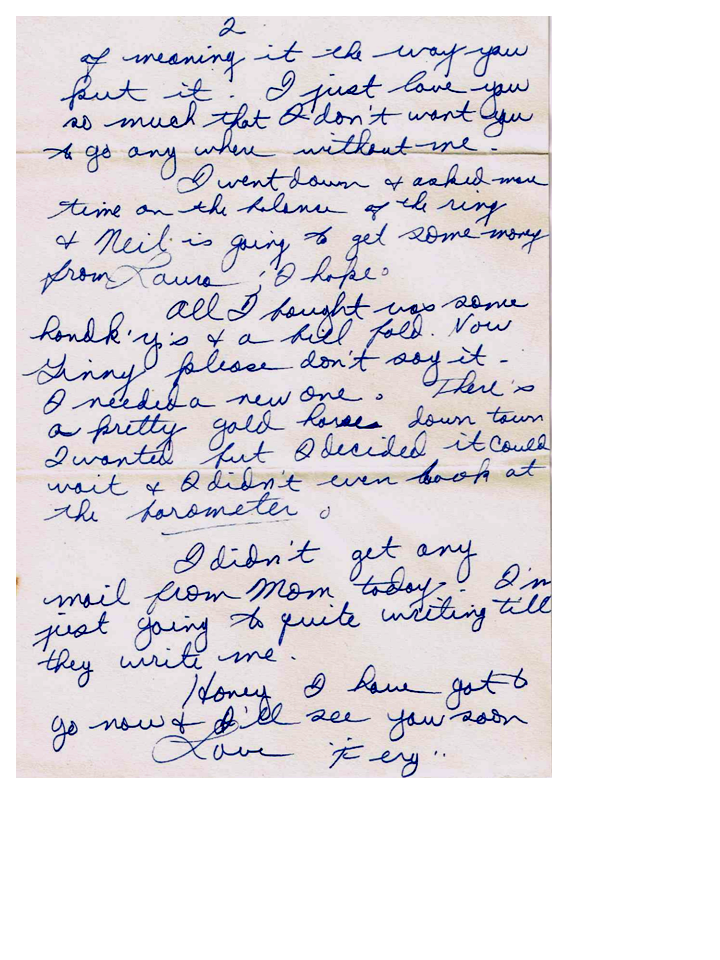 2
of meaning it the way you
put it. I just love you
so much that I don't want you
to go any where without me.
I went down & asked more
time on the balance of the ring
& Neil is going to get some money
from Laura, I hope.
All I bought was some
handk'y's & a bill fold. Now
Ginny please don't say it -
I needed a new one. There's
a pretty gold horses down town
I wanted but I decided it could
wait & I didn't even look at
the barometer.
I didn't get any
mail from Mom today. I'm
just going to quite writing till
they write me.
Honey I have got to
go now & I'll see you soon
Love